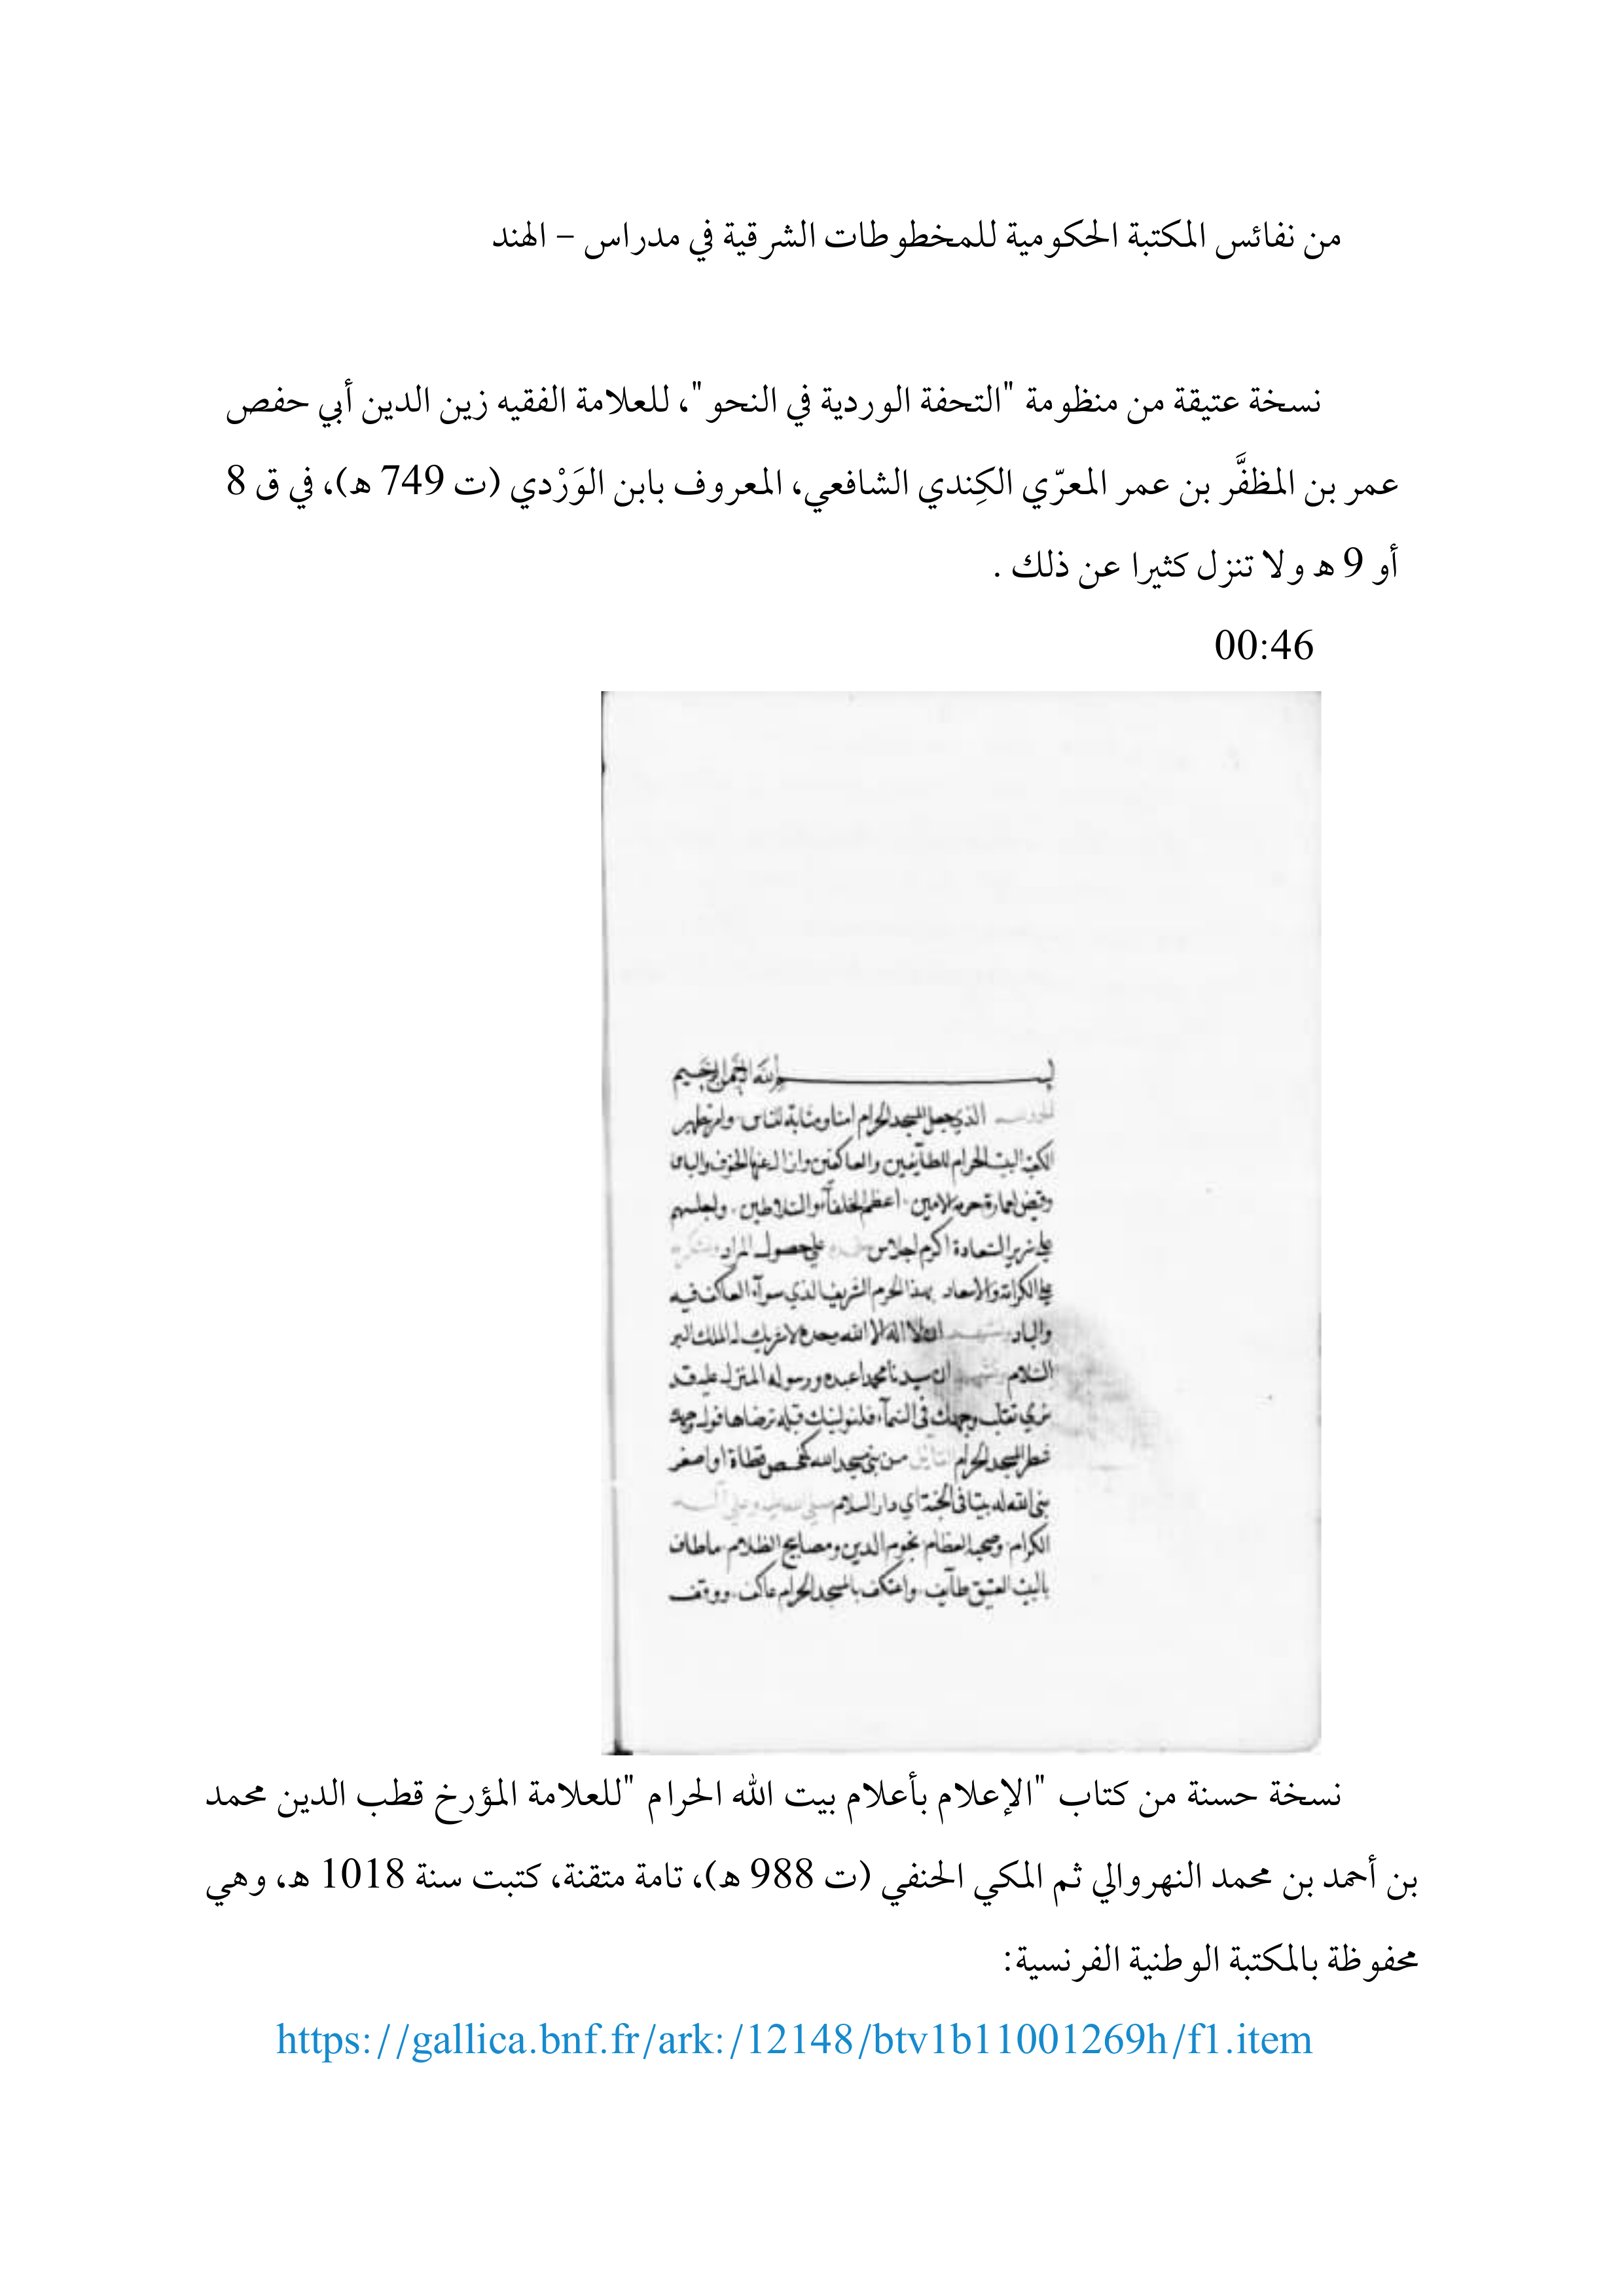 من نفائس المكتبة الحكومية للمخطوطات الشرقية في مدراس – الهند
نسخة عتيقة من منظومة "التحفة الوردية في النحو"، للعلامة الفقيه زين الدين أبي حفص
عمر بن المظفَّر بن عمر المعرّي الكِندي الشافعي، المعروف بابن الوَرْدي (ت 749 ه)، في ق 8
أو 9 ه ولا تنزل كثيرا عن ذلك .
00:46
بسم الله الرحمن الرحيم
الذي جعل المسجد الحرام امنا ومثابة للناس وامر بتطهير
الكعبة البيت الحرام للطآيفين والعاكفين وازال عنها الخوف والباس
وقيض لعمارة حرمه الامين اعظم الخلفآء والسلاطين واجلسهم
علي سرير السعادة اكرم اجلاس علي حصول المراد
علي الكرامة والاسعاد بهذا الحرم الشريف الذي سوآء العاكف فيه
والباد ان لا اله الا الله وحده لا شريك له الملك البر
السلام ان سيدنا محمدا عبده ورسوله المنزل عليه قد
نري تقلب وجهك في السمآء فلنولينك قبلة ترضاها فول وجهك
شطر المسجد الحرام القآيل من بني مسجد الله كمفحص قطاة او اصغر
بني الله له بيتا في الجنة اي دار السلام صلي الله عليه وعلي آله
الكرام وصحبه العظام نجوم الدين ومصابيح الظلام ما طاف
بالبيت العتيق طآيف واعتكف بالمسجد الحرام عاكف ووقف
نسخة حسنة من كتاب "الإعلام بأعلام بيت الله الحرام "للعلامة المؤرخ قطب الدين محمد
بن أحمد بن محمد النهروالي ثم المكي الحنفي (ت 988 ه)، تامة متقنة، كتبت سنة 1018 ه، وهي
محفوظة بالمكتبة الوطنية الفرنسية:
https://gallica.bnf.fr/ark:/12148/btv1b11001269h/f1.item